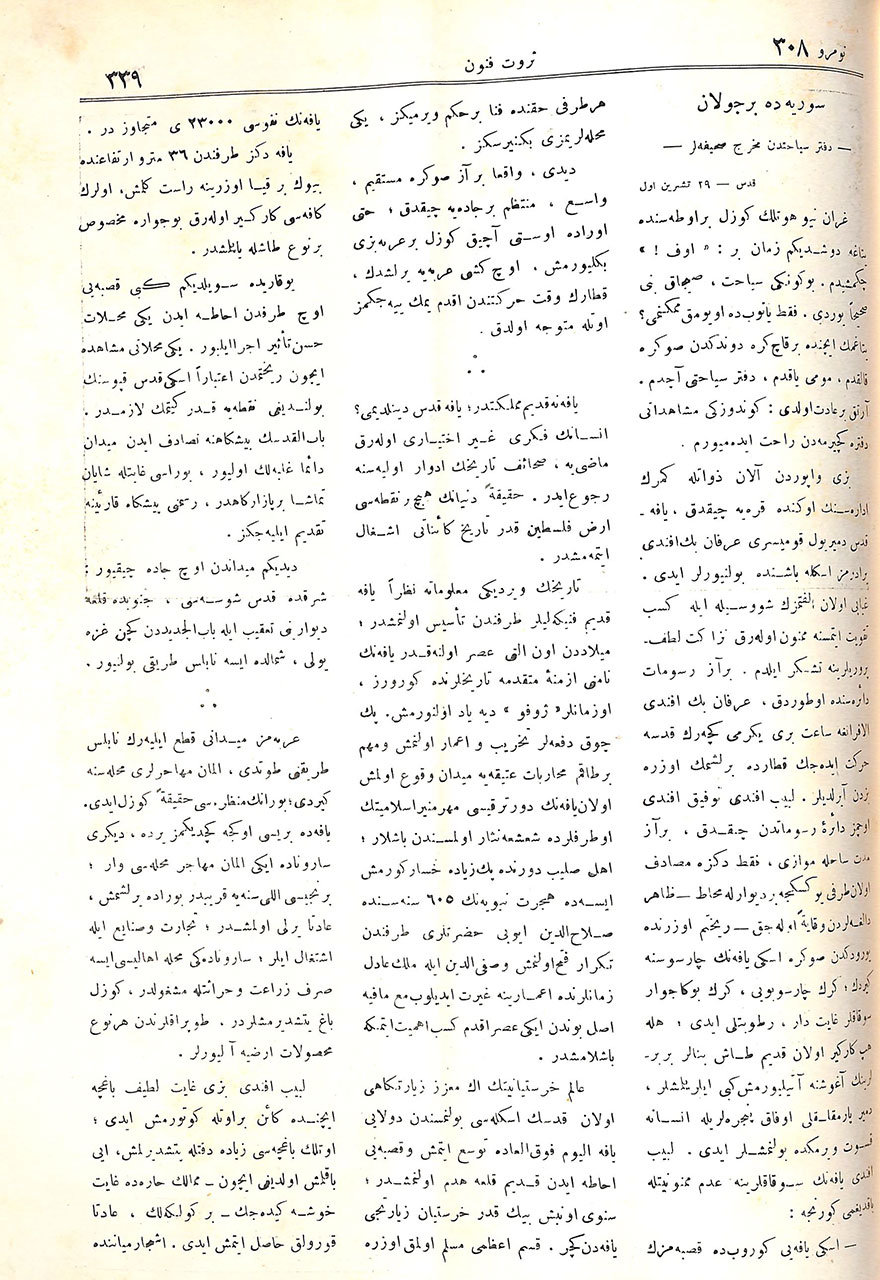 نومرو ٣٠٨
ثروت فنون
٣٣٩
سوریه‌ده برجولان
— دفتر سیاحتدن مخرج صحیفه‌لر —
قدس — ٢٩ تشرین اول
غران نیو هوتلك كوزل براوطه‌سنده
یتاغه دوشدیكم زمان بر : « اوف ! »
چكمشیدم . بوكونكی سیاحت ، صیجاق بنی
صحیحاً یوردی . فقط یاتوب‌ده اویومق ممكنمی؟
یتاغمك ایچنده برقاچ كره دوندكدن صوكره
قالقدم ، مومی یاقدم ، دفتر سیاحتی آچدم .
آرتق برعادت اولدی : كوندوزكی مشاهداتی
دفتره كچیرمه‌دن راحت ایده‌میورم .
بزی واپوردن آلان ذواتله كمرك
اداره‌سنك اوكنده قره‌یه چیقدق ، یافه ـ
قدس دمیریول قومیسری عرفان بك‌افندی
برادرمز اسكله باشنده بولنیورلر ایدی .
غیابی اولان الفتمزك شووسیله ایله كسب
تقویت ایتمسنه ممنون اوله‌رق نزاكت لطف‌ـ
پروریلرینه تشكر ایلدم . برآز رسومات
دائره‌سنده اوطوردق ، عرفان بك افندی
الافرانغه ساعت بری یكرمی كچه‌رك قدسه
حركت ایده‌جك قطارده برلشمك اوزره
بزدن آیرلدیلر . لبیب افندی توفیق افندی
اوچمز دائرهٔ رسوماتدن چیقدق ، برآز
مدت ساحله موازی ، فقط دكزه مصادف
اولان طرفی یوكسكجه بر دیوارله محاط — ظاهر
دالغه‌لردن وقایةً اوله‌جق — ریختم اوزرنده
یورودكدن صوكره اسكی یافه‌نك چارسوسنه
كیردك ؛ كرك چارسوبوبی ، كرك بوكاجوار
سوقاقلر غایت دار ، رطوبتلی ایدی ؛ هله
هپ كاركیر اولان قدیم طاش بنالر بربر‌ـ
لرینك آغوشنه آتیلیورمش كبی ایلریلشلر ،
دمیر پارمقلقلی اوفاق پنجره‌لریله انسانه
قسوت ویرمكده بولنمشلر ایدی . لبیب
افندی یافه‌نك سوقاقلرینه عدم ممنونیتله
باقدیغمی كورنجه :
— اسكی یافه‌یی كوروب‌ده قصبه‌مزك
هرطرفی حقنده فنا برحكم ویرمیكز ، یكی
محله‌لریمزی بكنیرسكز .
دیدی ، واقعا برآز صوكره مستقیم ،
واسع ، منتظم برجاده‌یه چیقدق ؛ حتی
اوراده اوستی آچیق كوزل برعربه‌بزی
بكلیورمش . اوچ كشی عربه‌یه یرلشدك ،
قطارك وقت حركتندن اقدم یمك ییه‌جكمز
اوتله متوجه اولدق .
⁂
یافه نه قدیم مملكتدر؛ یافه قدس دینلدیمی؟
انسانك فكری غیر اختیاری اوله‌رق
ماضی‌یه ، صحائف تاریخك ادوار اولیه‌سنه
رجوع ایدر . حقیقةً دنیانك هیچ‌بر نقطه‌سی
ارض فلسطین قدر تاریخ كائناتی اشغال
ایتمه‌مشدر .
تاریخك ویردیكی معلوماته نظراً یافه
قدیم فنیكه‌لیلر طرفندن تأسیس اولنمشدر ؛
میلاددن اون التی عصر اولنه‌قدر یافه‌نك
نامنی ازمنهٔ متقدمه تاریخلرنده كورورز ،
اوزمانلر « ژوفو » دیه یاد اولنورمش . پك
چوق دفعه‌لر تخریب و اعمار اولنمش ومهم
برطاقم محاربات عتیقه‌یه میدان وقوع اولمش
اولان یافه‌نك دورترقیسی مهرمنیر اسلامیتك
اوطرفلرده شعشعه‌نثار اولمسندن باشلار ؛
اهل صلیب دورنده پك زیاده خسار كورمش
ایسه‌ده هجرت نبویه‌نك ٦٠٥ سنه‌سنده
صلاح‌الدین ایوبی حضرتلری طرفندن
تكرار فتح اولنمش وصفی‌الدین ایله ملك عادل
زمانلرنده اعمارینه غیرت ایدیلوب مع مافیه
اصل بوندن ایكی عصراقدم كسب اهمیت ایتمكه
باشلامشدر .
عالم خرستیانیتك اك معزز زیارتكاهی
اولان قدسك اسكله‌سی بولنمسندن دولایی
یافه الیوم فوق‌العاده توسع ایتمش وقصبه‌یی
احاطه ایدن قدیم قلعه هدم اولنمشدر ؛
سنوی اونبش بیك قدر خرستیان زیارتجی
یافه‌دن كچر . قسم اعظمی مسلم اولمق اوزره
یافه‌نك نفوسی ٢٣٠٠٠ ی متجاوز در .
یافه دكز طرفندن ٣٦ مترو ارتفاعنده
بیوك بر قیا اوزرینه راست كلمش، اولرك
كافه‌سی كاركیر اوله‌رق بوجواره مخصوص
برنوع طاشله یاپلشدر .
یوقاریده سویلدیكم كبی قصبه‌یی
اوچ طرفدن احاطه ایدن یكی محلات
حسن تأثیر اجرا ایلیور . یكی محلاتی مشاهده
ایچون ریختمدن اعتباراً اسكی قدس قپوسنك
بولندیغی نقطه‌یه قدر كیتمك لازمدر .
باب‌القدسك پیشكاهنه تصادف ایدن میدان
دائما غلبه‌لك اولیور ، بوراسی غایتله شایان
تماشا بر بازارگاهدر ، رسمنی پیشكاه قارئینه
تقدیم ایلیه‌جكز .
دیدیكم میداندن اوچ جاده چیقیور :
شرقده قدس شوسه‌سی ، جنوبده قلعه
دیوارنی تعقیب ایله باب‌الجدیددن كچن غزه
یولی ، شمالده ایسه نابلس طریقی بولنیور .
⁂
عربه‌مز میدانی قطع ایلیه‌رك نابلس
طریقنی طوتدی ، المان مهاجرلری محله‌سنه
كیردی؛ بورانك منظره‌سی حقیقةً كوزل ایدی.
یافه‌ده بریسی اوكجه كچدیكمز یرده ، دیكری
سارونا ده ایكی المان مهاجر محله‌سی وار ؛
برنجیسی اللی سنه‌یه قریبدر بوراده یرلشمش ،
عادتا یرلی اولمشدر ؛ تجارت وصنایع ایله
اشتغال ایلر ؛ سارونا ده‌كی محله اهالیسی ایسه
صرف زراعت وحراثتله مشغولدر ، كوزل
باغ یتشدیرمشلردر . طوپراقلرندن هرنوع
محصولات ارضیه آلیورلر .
لبیب افندی بزی غایت لطیف باغچه
ایچنده كائن براوتله كوتورمش ایدی ؛
اوتلك باغچه‌سی زیاده دقتله یتشدیرلمش، ایی
باقلمش اولدیغی ایچون ـ ممالك حاره‌ده غایت
خوشه كیده‌جك ـ بر كولكه‌لك ، عادتا
قورولق حاصل ایتمش ایدی . اشجار میاننده